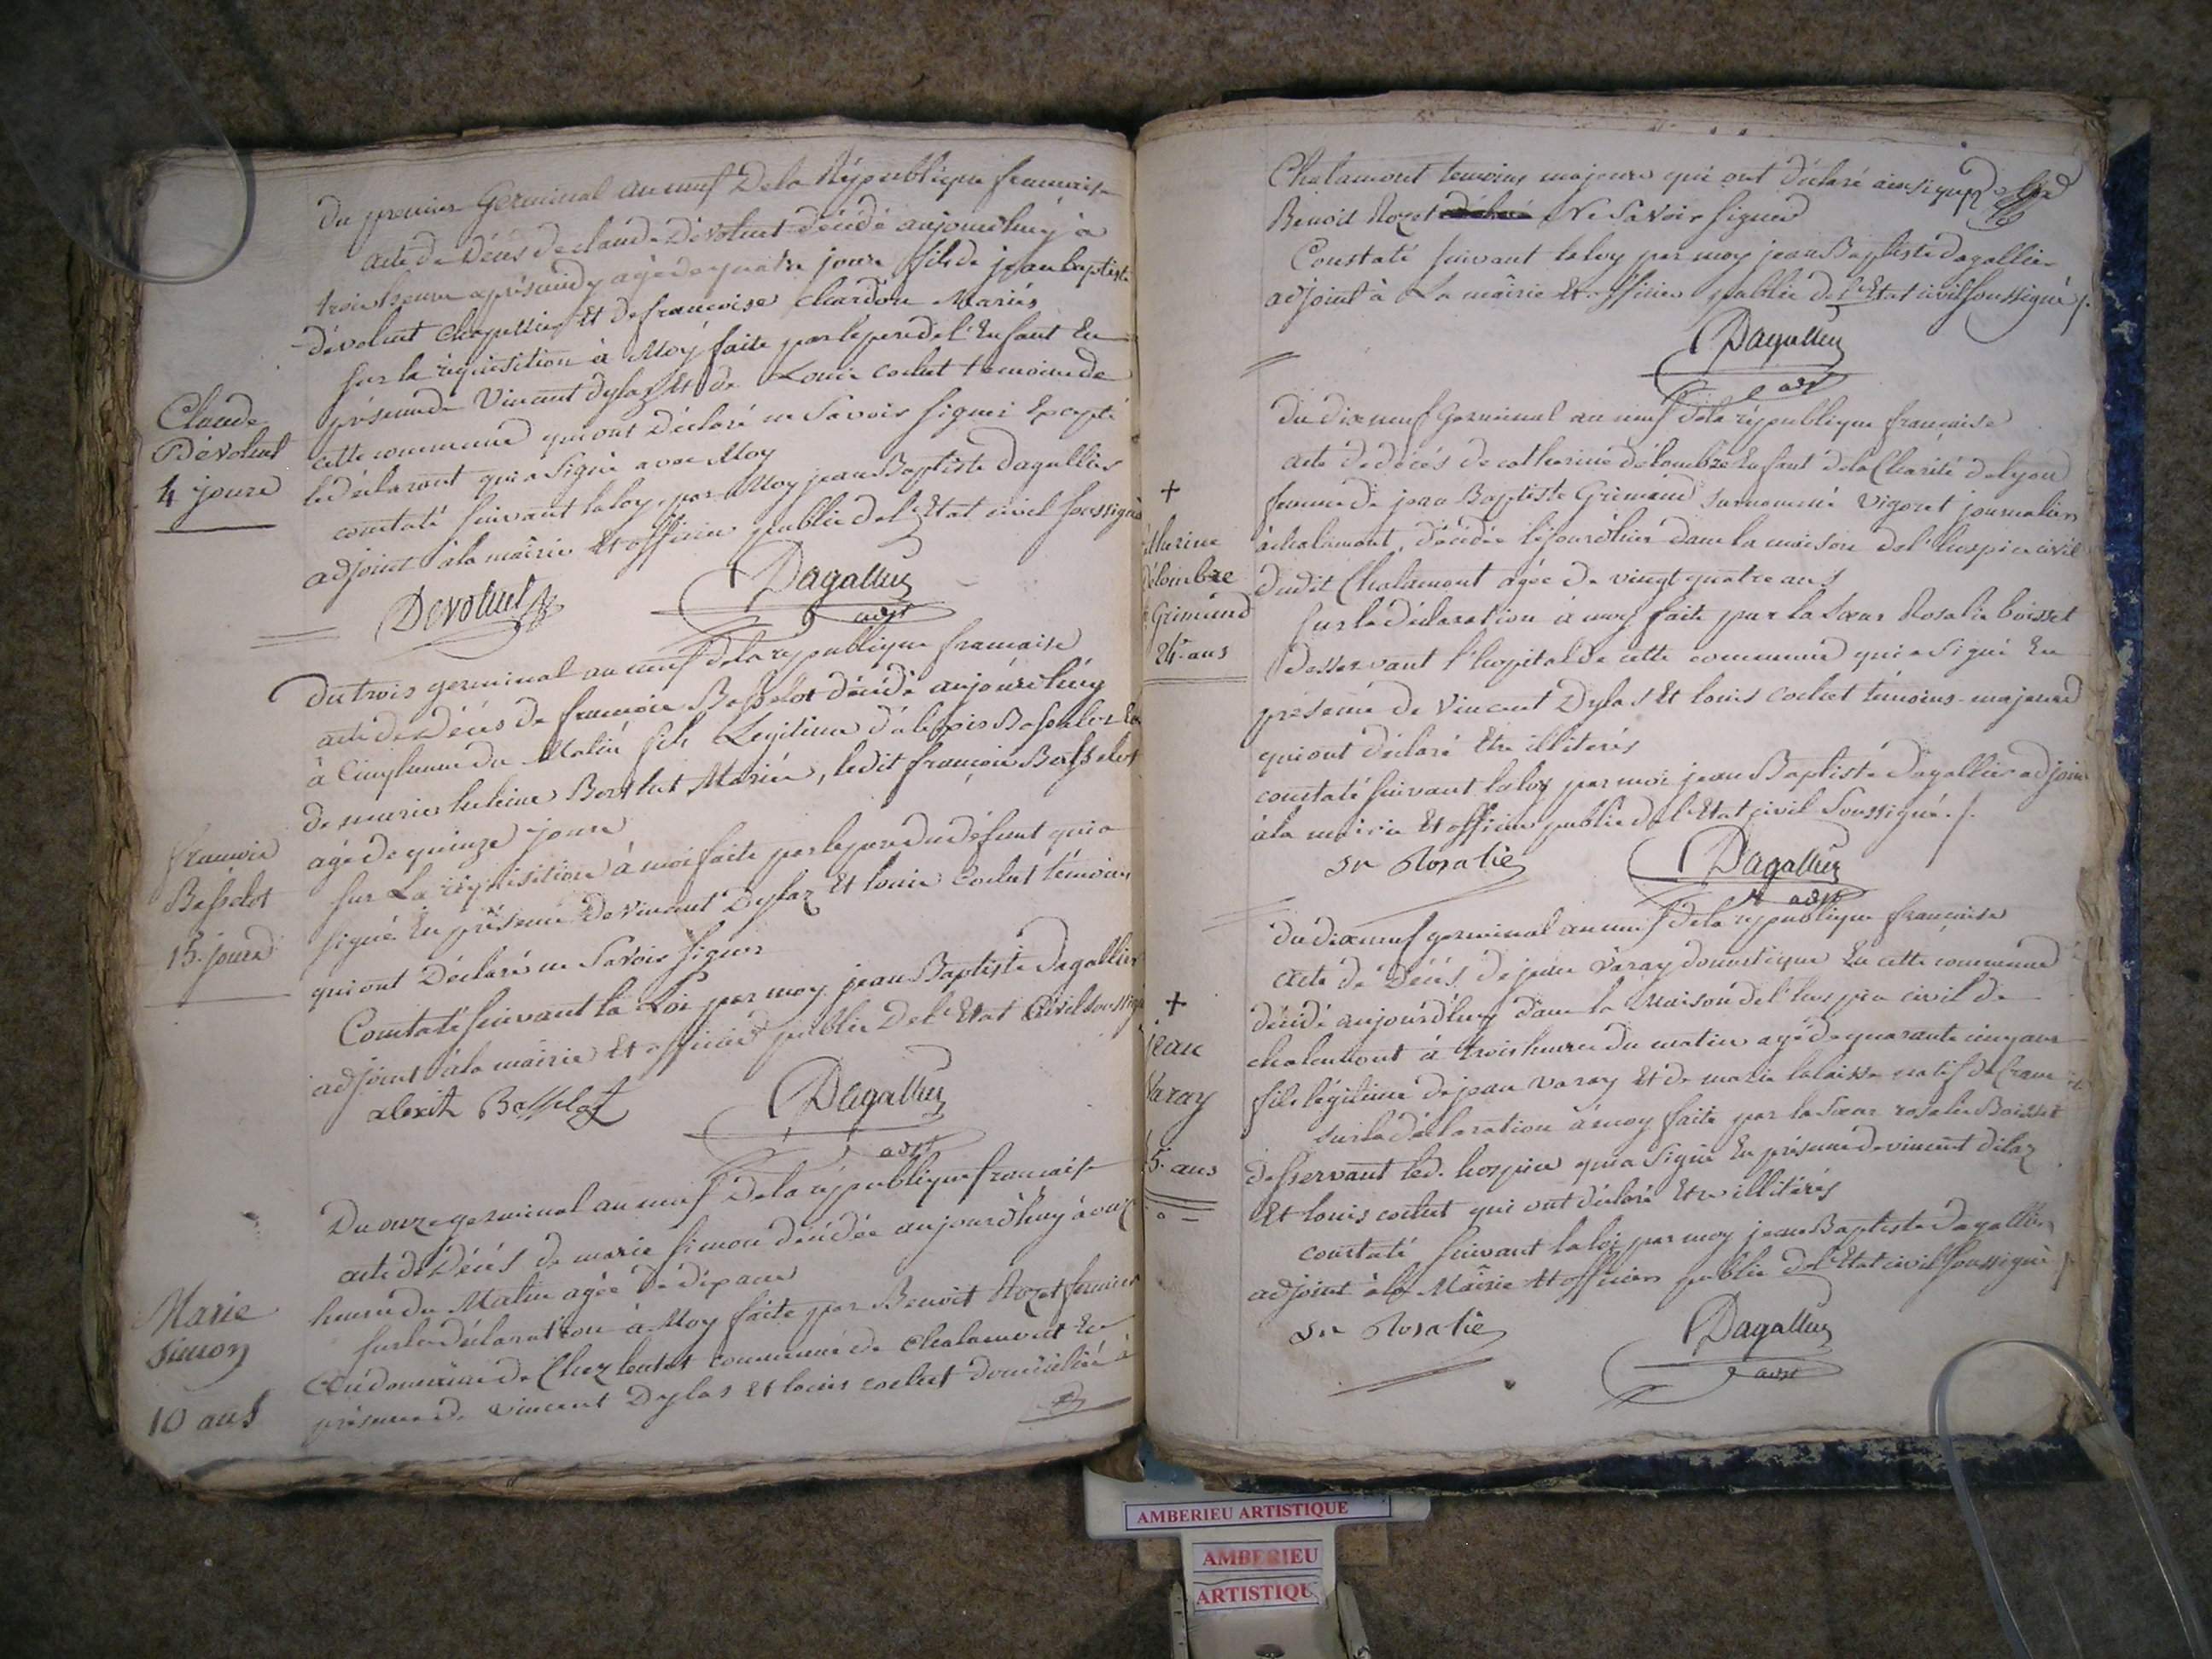 Du premier Germinal an neuf De la République francaise
acte de Décés de claude Dévoluet décédé aujourdhuy à
trois heure aprésmidy agé de quatre jours fils de jean baptiste
dévoluet Chapellier Et de francoise chardon Mariés
Sur la réquisition à Moy faite par le pere de l'Enfant En
présence de Vincent Dylas Et de Louis cochet temoins de
Claude
Dévoluet
4 jours
cette commune qui ont Déclaré ne Savoir signer Excepté
le déclarant qui a Signé avec Moy
constaté suivant la loy par Moy jean Baptiste Dagallier
adjoint à la mairie Et officier public de l'Etat civil soussigné
Dévoluet
Dagallier
adjt
du trois germinal an neuf de la republique francaise
acte de Décés de francois Basselot décédé aujourdhuy
à Cinq heure du Matin fils Legitime d'alexis Basselot Et
de marie heleine Berthet Mariés, ledit francois Basselot
agé de quinze jours
francois
Basselot
15. jours
Sur La réquisition à moi faite par le pere du défunt qui a
signé En présence de Vincent Dylaz Et louis Cochet témoins
qui ont Déclaré ne Savoir signer
Constaté suivant la Loi par moy jean Baptiste Dagallier
adjoint à la mairie Et officier public De l'Etat Civil soussigné
alexit Basselot
Dagallier
adjt
Du onze germinal an neuf De la république francaise
acte de Décés de marie simon décédée aujourdhuy à onze
heure du Matin agée de dix ans
Marie
simon
10 ans
sur la déclaration à Moy faite par Benoit Rozet fermier
au domaine de Chez commune de Chalamont En
présence de vincent Dylas Et louis cochet domiciliés à
Chalamont temoins majeurs qui ont déclaré ainsi que
Benoit Rozet Ne Savoir signer
Constaté suivant la loy par moy jean Baptiste dagallier
adjoint à La mairie Et officier public de l'Etat civil soussigné ./.
Dagallier
adjt
du dix neuf Germinal an neuf de la république française
acte de décés de catherine délombre Enfant de la Charité de lyon
femme de jean Baptiste Grimand surnommé Vigoret journalier
+
catherine
délombre
f. Grimand
24 ans
à chalamont, décédée le jourdhui dans la maison de l'hospice civil
dudit Chalamont agée de vingt quatre ans
sur la déclaration à moy faite par la sœur Rosalie boisset
desservant l'hopital de cette commune qui a signé En
présence de vincent Dylas Et louis cochet témoins majeurs
qui ont déclaré Etre illiterés
constaté suivant la loy par moi jean Baptiste Dagallier adjoint
à la mairie Et officier public de l'Etat civil Soussigné ./.
Sr Rosalie
Dagallier
adjt
du dix neuf germinal an neuf de la république française
acte de Décés de jean Varay domestique En cette commune
+
jean
Varay
45 ans
décédé aujourdhuy dans la Maison de l'hospice civil de
chalamont à trois heures du matin agé de quarante cinq ans
fils légitime de jean varay Et de marie natif de
sur la déclaration à moy faite par la sœur rosalie Boisset
desservant led. hospice qui a signé En présence de vincent dilaz
Et louis cochet qui ont déclaré Etre illiterés
constaté suivant la loi par moy jean Baptiste Dagallier
adjoint à la Mairie Et officier public de l'Etat civil soussigné ./.
Sr Rosalie
Dagallier
adjt
AMBERIEU ARTISTIQUE
AMBERIEU
ARTISTIQU